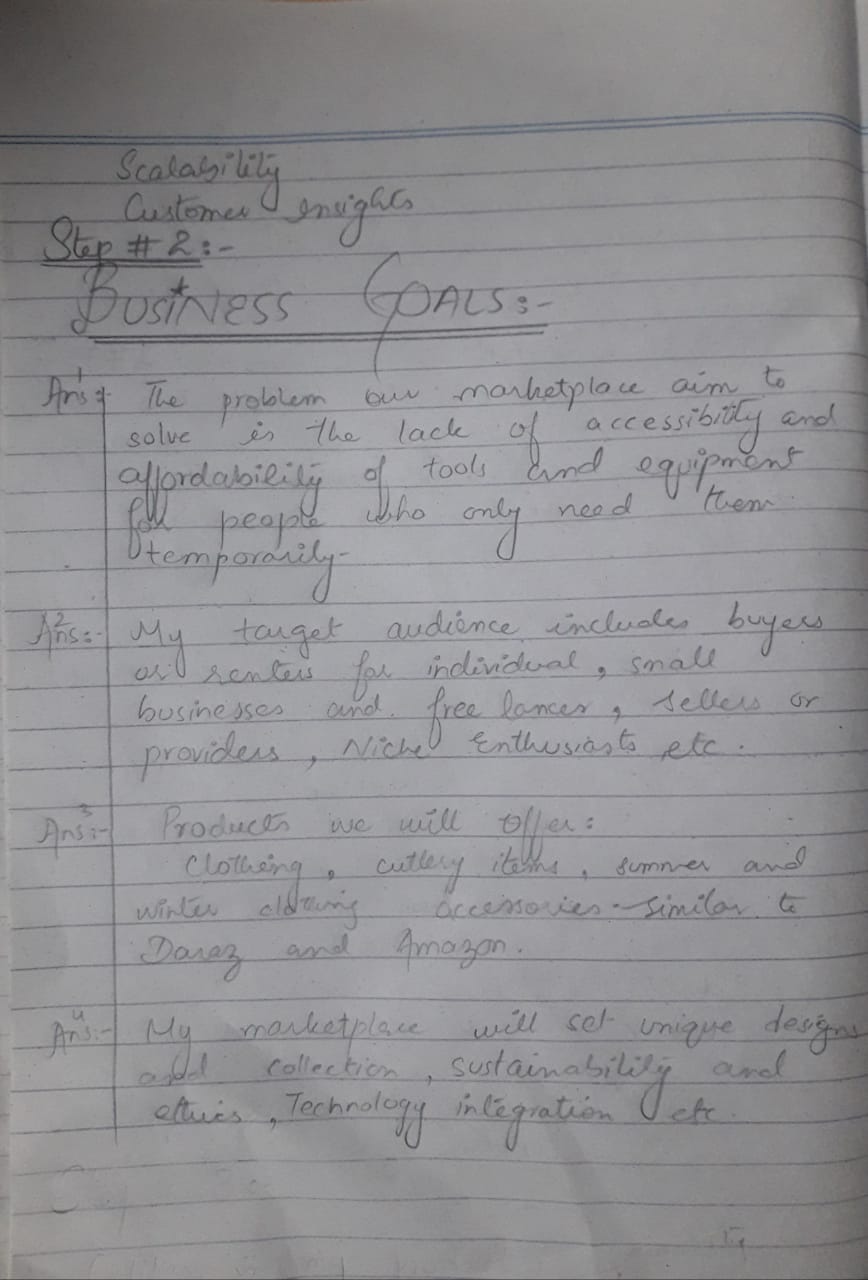 Scalability
Customer Insights
Step # 2:-
BUSINESS GOALS:-
Ans 1 The problem our marketplace aim to
solve is the lack of accessibility and
affordability of tools and equipment
for people who only need them
temporarily-
Ans 2:- My target audience includes buyers
or renters for individual, small
businesses and free lancer, sellers or
providers, Niche Enthusiasts etc.
Ans 3:- Products we will offer:
Clothing, cutlery items, summer and
winter clothing accessories-similar to
Daraz and Amazon.
Ans 4:- My marketplace will set unique designs
and collection, sustainability and
ethics, Technology integration etc.